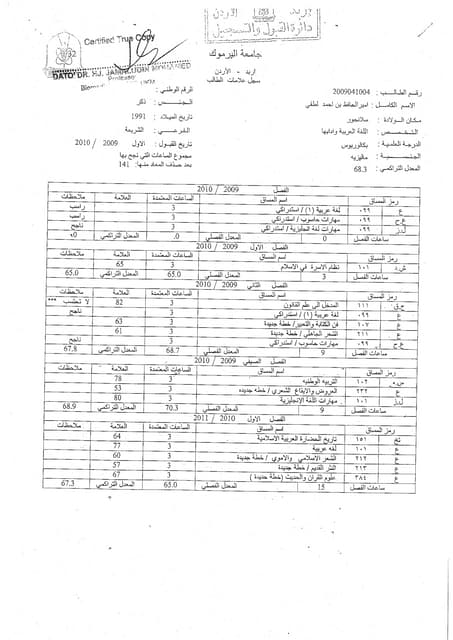 Certified True Copy
اربد - الأردن
دائرة القبول والتسجيل
DATO' DR. HJ.
جامعة اليرموك
اربد - الأردن
سجل علامات الطالب
رقم الطالب : 2009041004
الرقم الوطني :
الاسم الكامل : اميرالحافظ بن احمد لطفي
الجنس : ذكر
مكان الولادة : سلانجور
تاريخ الميلاد : 1991
التخصص : اللغة العربية وادابها
الفرعي : الشريعة
الدرجة العلمية : بكالوريوس
تاريخ القبول : الاول 2009 / 2010
الجنسية : ماليزيه
مجموع الساعات التي نجح بها
المعدل التراكمي : 68.3
بعد حذف المعاد منها: 141
الفصل 2009 / 2010
رمز المساق اسم المساق الساعات المعتمدة العلامة ملاحظات
ع ٠٩٩ لغة عربية (١) / استدراكي 3 راسب
ع.ح ٠٩٩ مهارات حاسوب / استدراكي 3 راسب
ل.ز ٠٩٩ مهارات لغة انجليزية / استدراكي 3 ناجح
ساعات الفصل 0 المعدل الفصلي .0 المعدل التراكمي .0
الفصل الاول 2009 / 2010
رمز المساق اسم المساق الساعات المعتمدة العلامة ملاحظات
ش.د ١٠١ نظام الاسرة في الاسلام 3 65
ساعات الفصل 3 المعدل الفصلي 65.0 المعدل التراكمي 65.0
الفصل الثاني 2009 / 2010
رمز المساق اسم المساق الساعات المعتمدة العلامة ملاحظات
ح.ق ١١١ المدخل الى علم القانون 3 82 لا تحتسب ***
ع ٠٩٩ لغة عربية (١) / استدراكي 3 ناجح
ع ١٠٧ فن الكتابة والتعبير/ خطة جديدة 3 63
ع ٢١١ الشعر الجاهلي / خطة جديدة 3 61
ع.ح ٠٩٩ مهارات حاسوب / استدراكي 3 ناجح
ساعات الفصل 9 المعدل الفصلي 68.7 المعدل التراكمي 67.8
الفصل الصيفي 2009 / 2010
رمز المساق اسم المساق الساعات المعتمدة العلامة ملاحظات
س.ه ١٠٢ التربيه الوطنيه 3 78
ع ٢٣٢ العروض والايقاع الشعري / خطه جديده 3 53
ل.ز ١٠١ مهارات اللغة الإنجليزية 3 80
ساعات الفصل 9 المعدل الفصلي 70.3 المعدل التراكمي 68.9
الفصل الاول 2010 / 2011
رمز المساق اسم المساق الساعات المعتمدة العلامة ملاحظات
تخ ١٥١ تاريخ الحضارة العربية الاسلامية 3 64
ع ١٠١ لغه عربية 3 77
ع ٢١٢ الشعر الاسلامي والاموي / خطة جديدة 3 60
ع ٢١٣ النثر القديم / خطة جديدة 3 57
ع ٣٨٤ علوم القران والحديث (خطة جديدة ) 3 67
ساعات الفصل 15 المعدل الفصلي 65.0 المعدل التراكمي 67.3